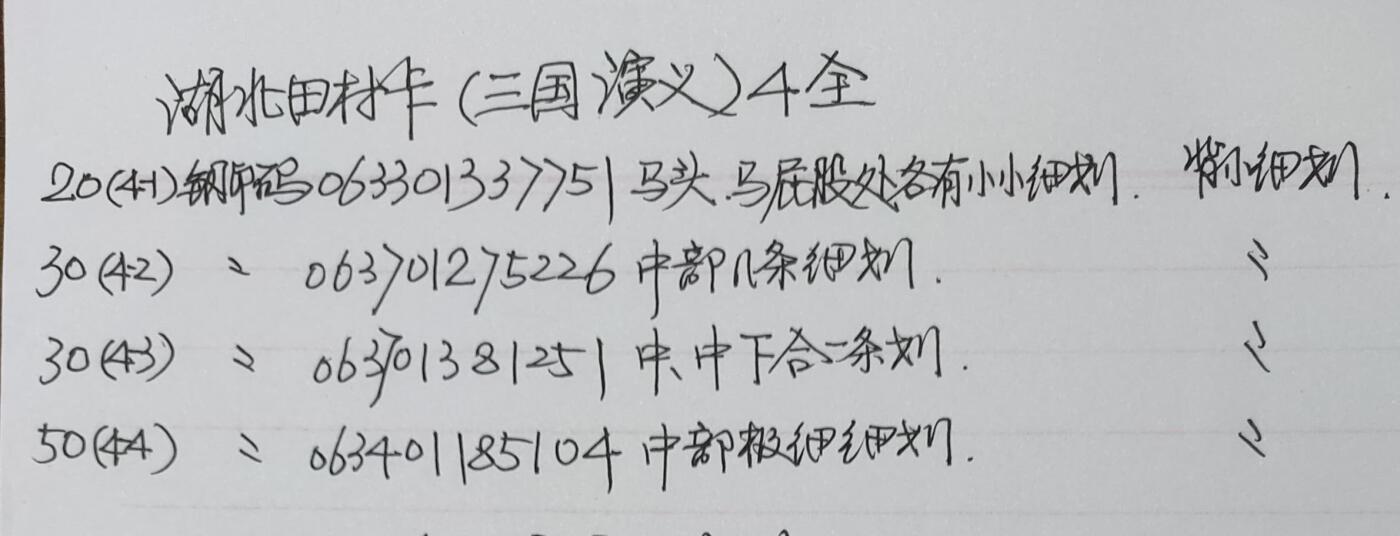 湖北田村卡(三国演义)4全
20(4-1)钢印码063301337751马头.马屁股处各有小小细划. 背小细划.
30(4-2) 〃 063701275226中部几条细划. 〃
30(4-3) 〃 063701381251中、中下合二条划. 〃
50(4-4) 〃 063401185104中部极细细划. 〃